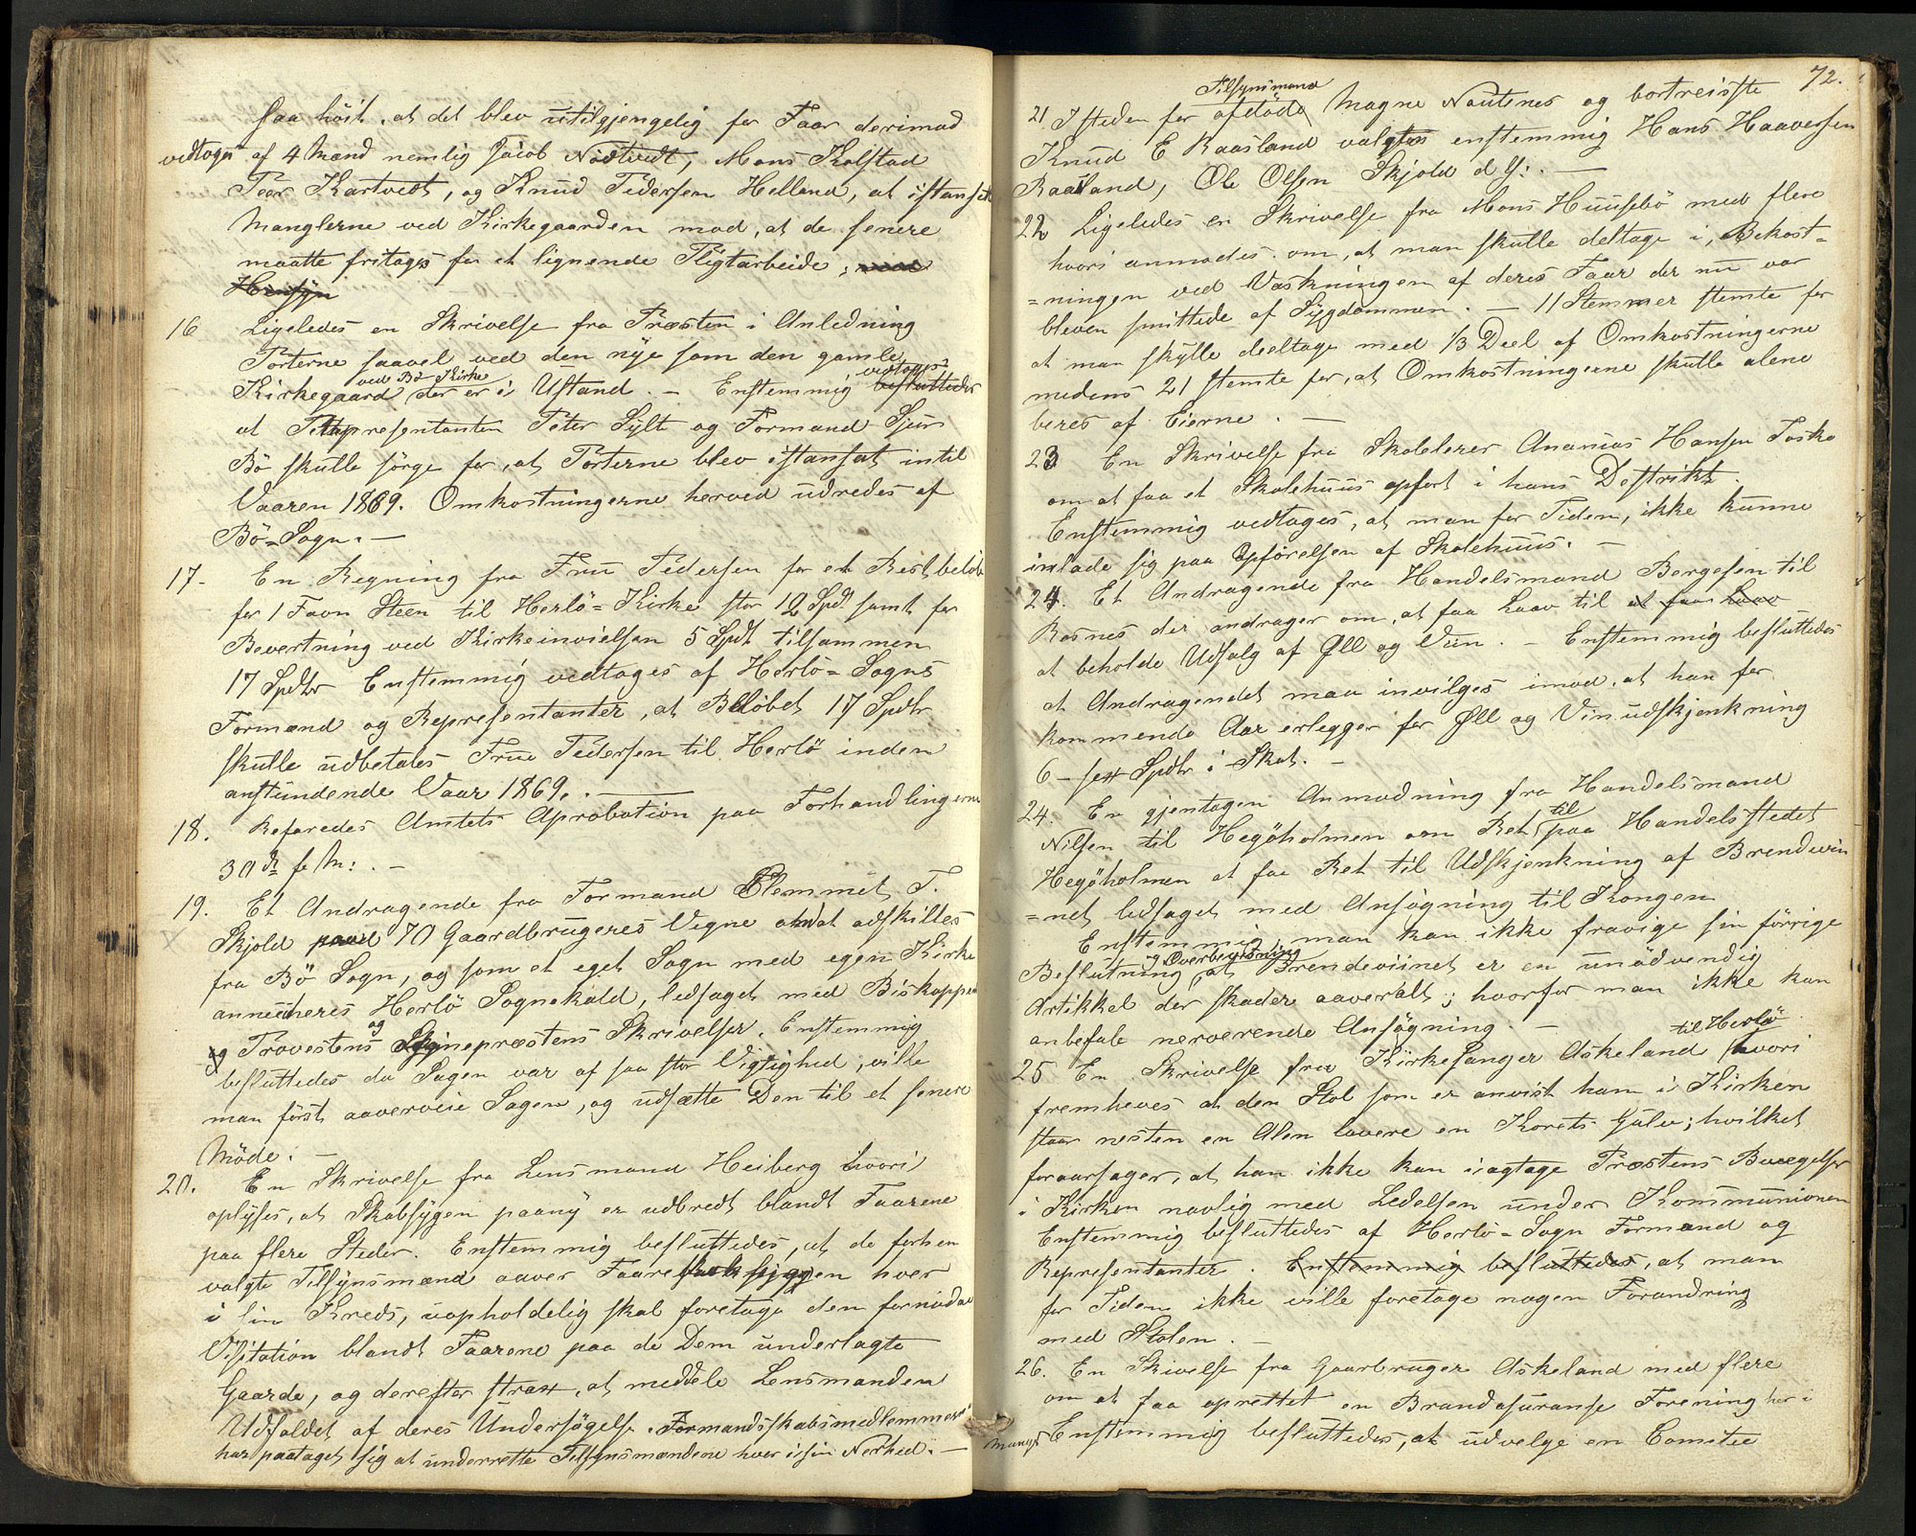 saa höit, at det blev utilgjengelig for Faar derimod
vedtoges af 4 Mænd nemlig Jacob Nödtvedt, Mons Kolstad
Peer Kartvedt, og Knud Pedersen Helland, at istansætte
Manglerne ved Kirkegaarden mod, at de senere
maatte fritages for et lignende Pligtarbeide, med
Hensÿn
16 Ligeledes en Skrivelse fra Præsten i Anledning
Porterne saavel ved den nÿe som den gamle
Kirkegaard ved Bö Kirke der er i Ustand. – Enstemmig vedtoges besluttedes
at Representanten Peter Sÿlte og Formand Sjurs
Bö skulle sörge for, at Porterne blev istansat intil
Vaaren 1869. Omkostningerne herved udredes af
Bö-Sogn. –
17- En Regning fra Fru Pedersen for et Restbelöb
for 1 Favn Steen til Herlö-Kirke stor 12 Spd samt for
Bevertning ved Kirkeinvielsen 5 Spdl tilsammen
17 Spdlr Enstemmig vedtoges af Herlö-Sogns
Formænd og Representanter, at Belöbet 17 Spdlr
skulle udbetales Frue Pedersen til Herlö inden
anstundende Vaar 1869. –
18. Referedes Amtets Aprobation paa Forhandlingerne
30te f. M: . –
19. Et Andragende fra Formand Clemmet T.
Skjold paa 70 Gaardbrugeres Vegne om at adskilles
fra Bö Sogn, og som et eget Sogn med egen Kirke
annecteres Herlö Sognekald, ledsaget med Biskoppens
og Provestens og Sognepræstens Skrivelser. Enstemmig
besluttedes da Sagen var af saa stor Vigtighed, ville
man först aaverveie Sagen, og udsætte Den til et senere
Möde. –
20. En Skrivelse fra Lensmand Heiberg hvori
oplÿses, at Skabsÿgen paanÿ er udbredt blandt Faarene
paa flere Steder. Enstemmig besluttedes, at de forhen
valgte Tilsÿnsmænd aaver Faareskabsygen hver
i sin Kreds, uopholdelig skal foretage den fornödne
Visitation blandt Faarene paa de Dem underlagte
Gaarde, og derefter strax, at meddele Lensmanden
Udfaldet af deres Undersögelse. Formandsskabsmedlemmerne
har paataget sig at underrette Tilsÿnsmændene hver i sin Nerhed. –
72.
21. Isteden for Tilsynsmænd afdöde Magne Nautnes og bortreiste
Knud E Raasland valgtes enstemmig Hans Haaversen
Raasland, Ole Olsen Skjold d. Y: . –
22 Ligeledes en Skrivelse fra Mons Huusebö med flere
hvori anmodes om, at man skulle deltage i, Bekost-
-ningen ved Vaskningen af deres Faar der nu var
bleven smittede af Sÿgdommen. – 11 Stemmer stemte for
at man skulle deeltage med 1/3 Deel af Omkostningerne
medens 21 stemte for, at Omkostningerne skulle alene
beres af Eierne. –
23 En Skrivelse fra Skolelerer Ananias Hansen Toska
om at faa et Skolehuus opfört i hans Destrikt.
Enstemmig vedtoges, at man for Tiden, ikke kunne
inlade sig paa Opförelsen af Skolehuus. –
24. Et Andragende fra Handelsmand Bergesen til
Rosnes der andrager om, at faa Laav til at faa Laav
at beholde Udsalg af Øll og Viin. – Enstemmig besluttedes
at Andragendet maa invilges imod, at han for
kommende Aar erlegger for Øll og Vinudskjenkning
6 – sex Spdlr i Skat. –
24. En gjentagen Anmodning fra Handelsmand
Nilsen til Hegöholmen om Ret til paa Handelsstedet
Hegöholmen at faa Ret til Udskjenkning af Brendeviin
-net ledsaget med Ansögning til Kongen
Enstemmig, man kan ikke fravige sin förrige
Beslutning og Overbeviisning, at Brendeviinet er en unödvendig
Artikkel der skader aaveralt; hvorfor man ikke kan
anbefale nerverende Ansögning. –
25 En Skrivelse fra Kirkesanger Askeland til Herlö hvori
fremheves at den Stol som er anvist ham i Kirken
staar nesten en Alen lavere en Korets Gulv; hvilket
foraarsager, at han ikke kan iagtage Præstens Bevegelser
i Kirken navlig med Ledelsen under Kommunionen
Enstemmig besluttedes af Herlö-Sogn Formænd og
Representanter. Enstemmig besluttedes, at man
for Tiden ikke ville foretage nogen Forandring
med Stolen. –
26. En Skivelse fra Gaarbruger Askeland med flere
om at faa oprettet en Brandasuranse Forening her i
Enstemmig besluttedes, at udvelge en Comitee